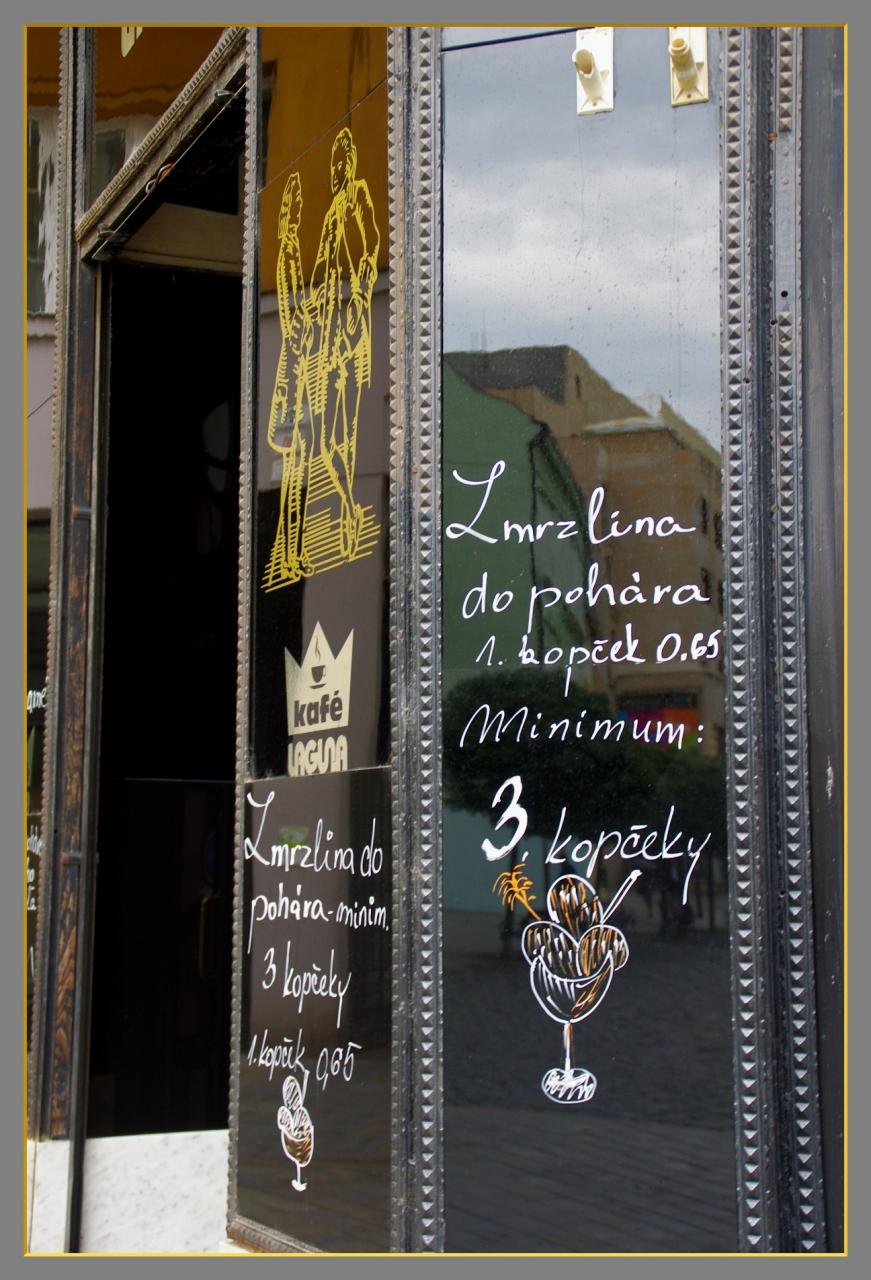 kafé
LAGUNA
Zmrzlina do
pohára-minim.
3 kopčeky
1. kopček 0,65
Zmrzlina
do pohára
1. kopček 0.65
Minimum:
3. kopčeky